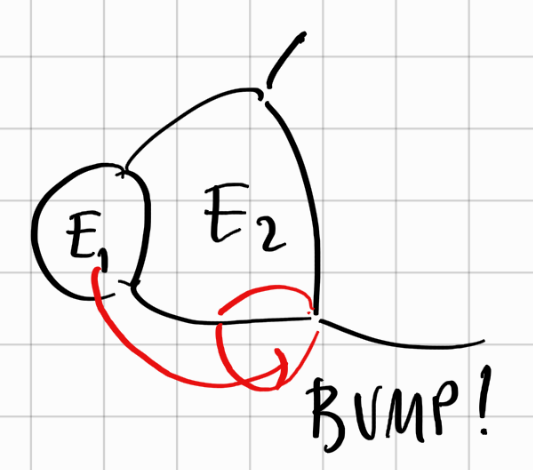 E₁
E₂
BUMP!